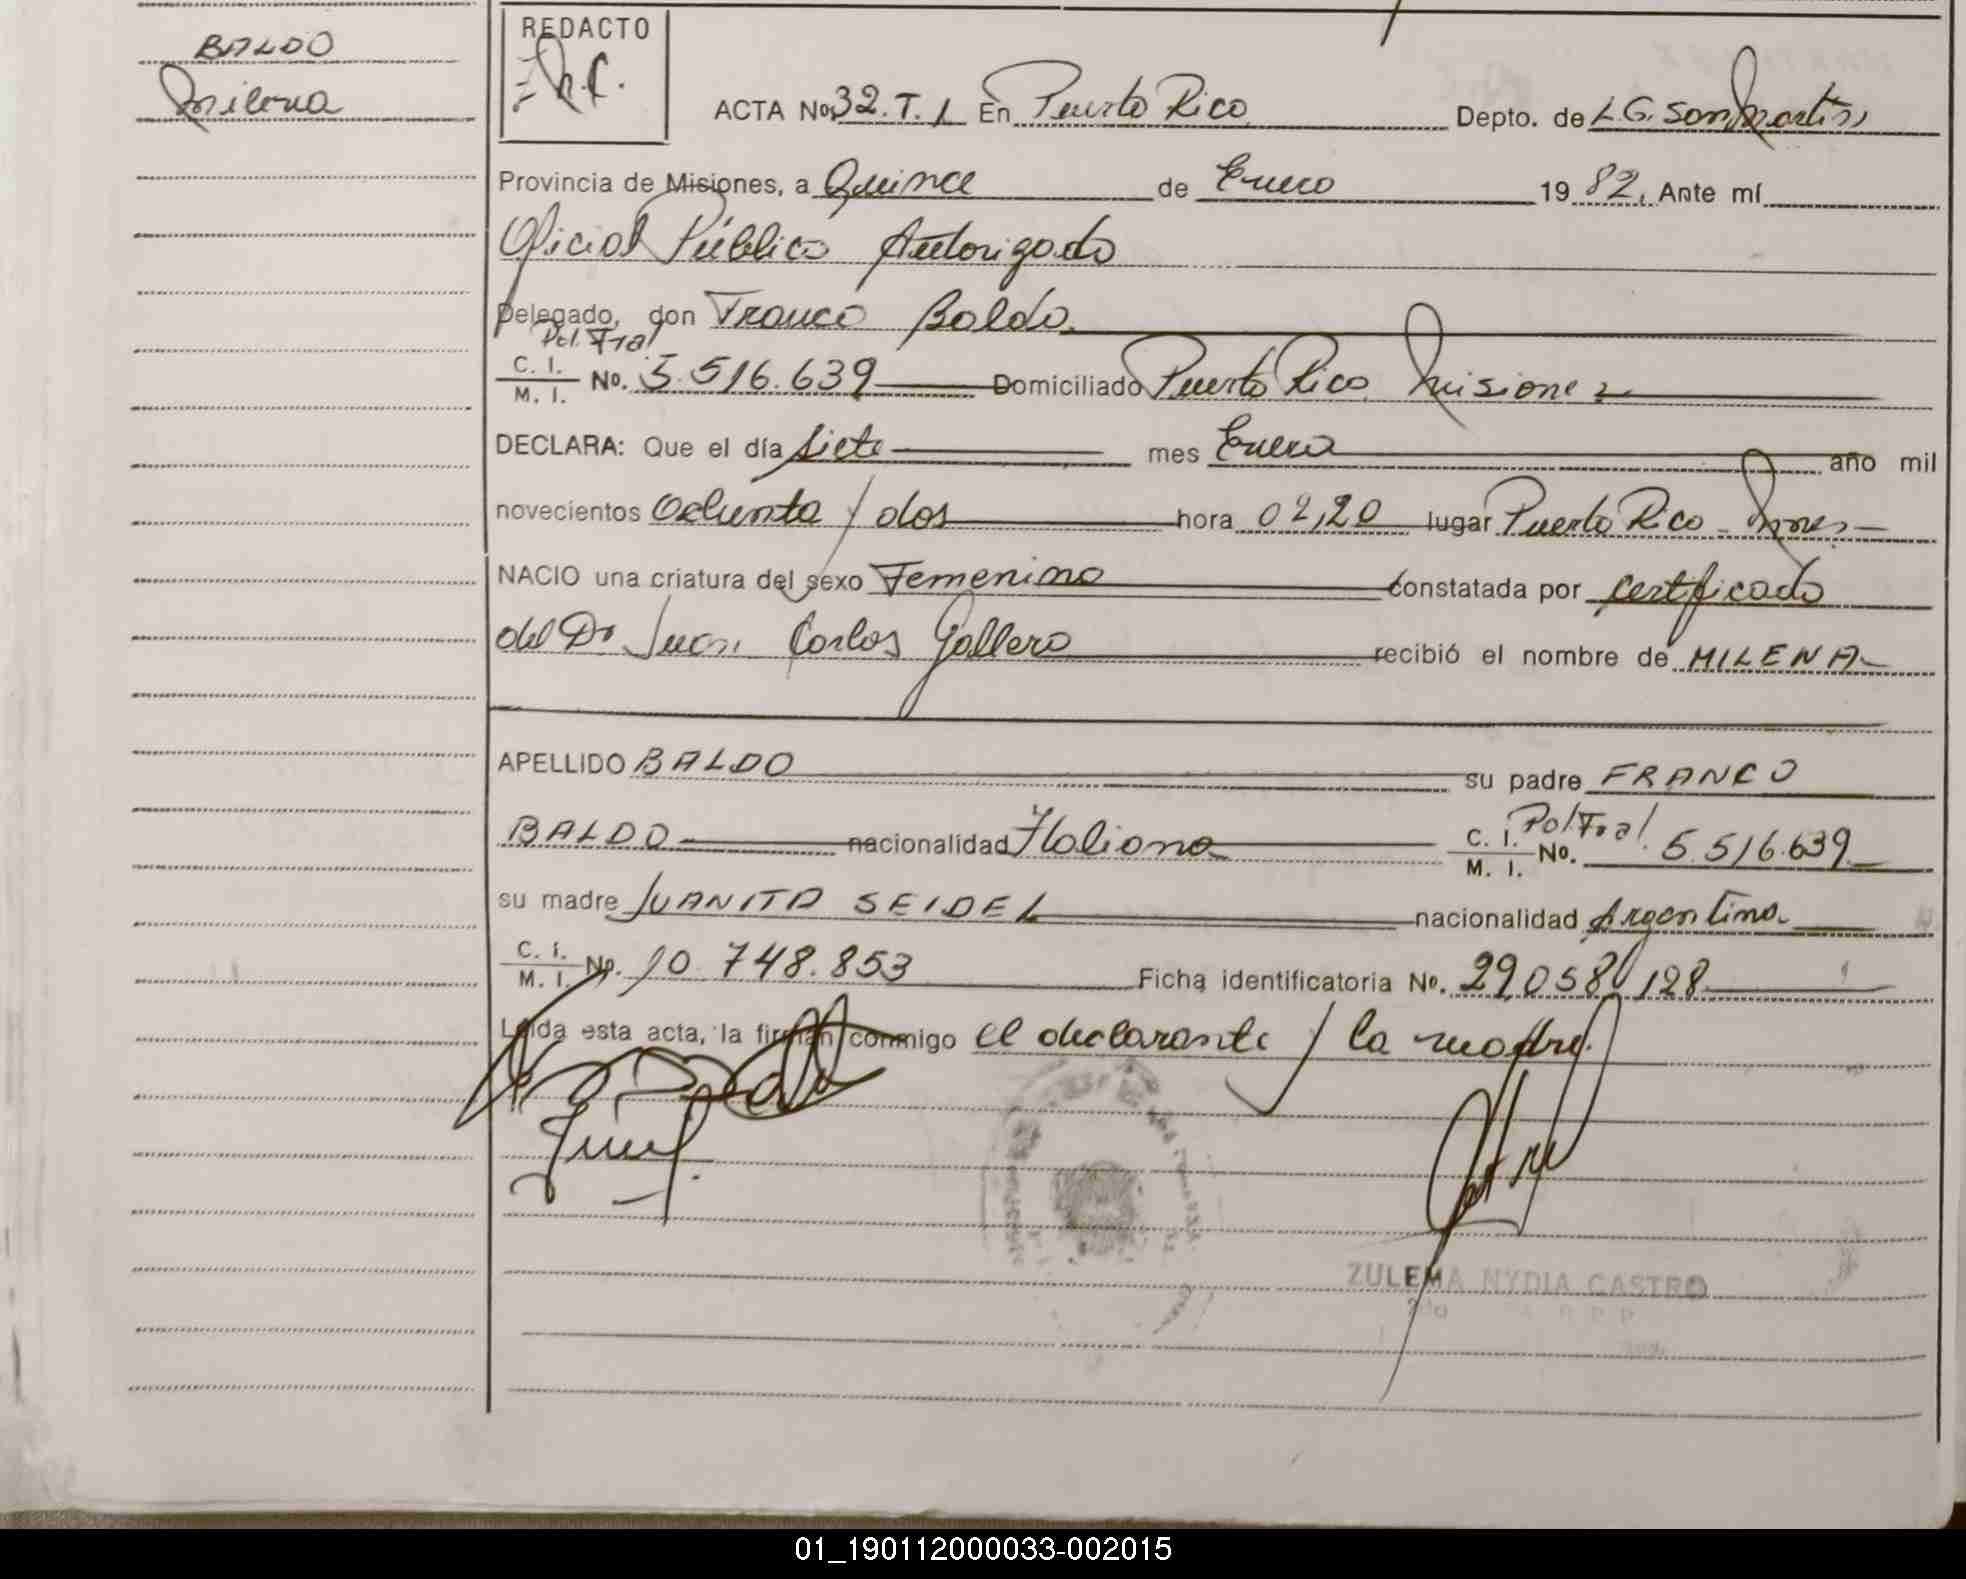 BALDO
Milena
REDACTO
ACTA No 32. T. 1 En Puerto Rico Depto. de L.G. San Martín
Provincia de Misiones, a Quince de Enero 19 82, Ante mí
Oficial Público Autorizado
Delegado, don Franco Baldo
Pol. Fral
C. I.
M. I. No. 5.516.639 Domiciliado Puerto Rico, Misiones
DECLARA: Que el día siete mes Enero año mil
novecientos ochenta y dos hora 02,20 lugar Puerto Rico - Mnes
NACIO una criatura del sexo Femenino constatada por certificado
del Dr Juan Carlos Gallero recibió el nombre de MILENA
APELLIDO BALDO su padre FRANCO
BALDO nacionalidad Italiana C. I. Pol Fral.
M. I. No. 5.516.639
su madre JUANITA SEIDEL nacionalidad Argentina
C. I.
M. I. No. 10.748.853 Ficha identificatoria No. 29.058.128
Leída esta acta, la firman conmigo el declarante y la madre.
ZULEMA NYDIA CASTRO
01_190112000033-002015